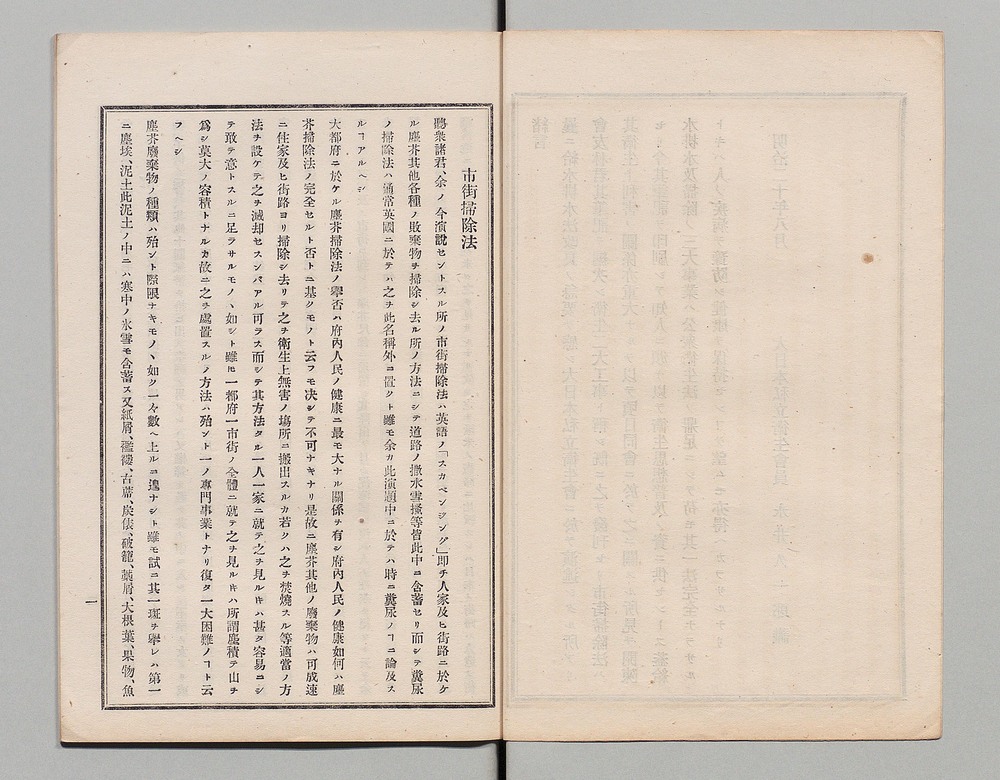 市街掃除法
聽衆諸君、余ノ今演說セントスル所ノ市街掃除法ハ英語ノ「スカベンジング」即チ人家及ヒ街路ニ於ケ
ル塵芥其他各種ノ敗棄物ヲ掃除シ去ル所ノ方法ニシテ道路ノ撒水雪掻等皆此中ニ含蓄セリ而シテ糞尿
ノ掃除法ハ通常英國ニ於テハ之ヲ此名稱外ニ置クト雖モ余カ此演題中ニ於テハ時ニ糞尿ノヿニ論及ス
ルヿアルヘシ
大都府ニ於ケル塵芥掃除法ノ擧否ハ府內人民ノ健康ニ最モ大ナル關係ヲ有シ府內人民ノ健康如何ハ塵
芥掃除法ノ完全セルト否トニ基クモノト云フモ决シテ不可ナキナリ是故ニ塵芥其他ノ廢棄物ハ可成速
ニ住家及ヒ街路ヨリ掃除シ去リテ之ヲ衛生上無害ノ塲所ニ搬出スルカ若クハ之ヲ焚燒スル等適當ノ方
法ヲ設ケテ之ヲ滅却セスンバアル可ラス而シテ其方法タル一人一家ニ就テ之ヲ見ルキハ甚タ容易ニシ
テ敢テ意トスルニ足ラサルモノヽ如シト雖𪜈一都府一市街ノ全體ニ就テ之ヲ見ルキハ所謂塵積テ山ヲ
爲シ莫大ノ容積トナルカ故ニ之ヲ處置スルノ方法ハ殆ント一ノ專門事業トナリ復タ一大困難ノヿト云
フヘシ
塵芥廢棄物ノ種類ハ殆ント際限ナキモノヽ如ク一々數ヘ上ルニ遑ナシト雖モ試ニ其一斑ヲ擧レハ第一
ニ塵埃、泥土此泥土ノ中ニハ寒中ノ氷雪モ含蓄ス又紙屑、襤褸、古蓆、炭俵、破籠、藁屑、大根ノ葉、果物、魚
一